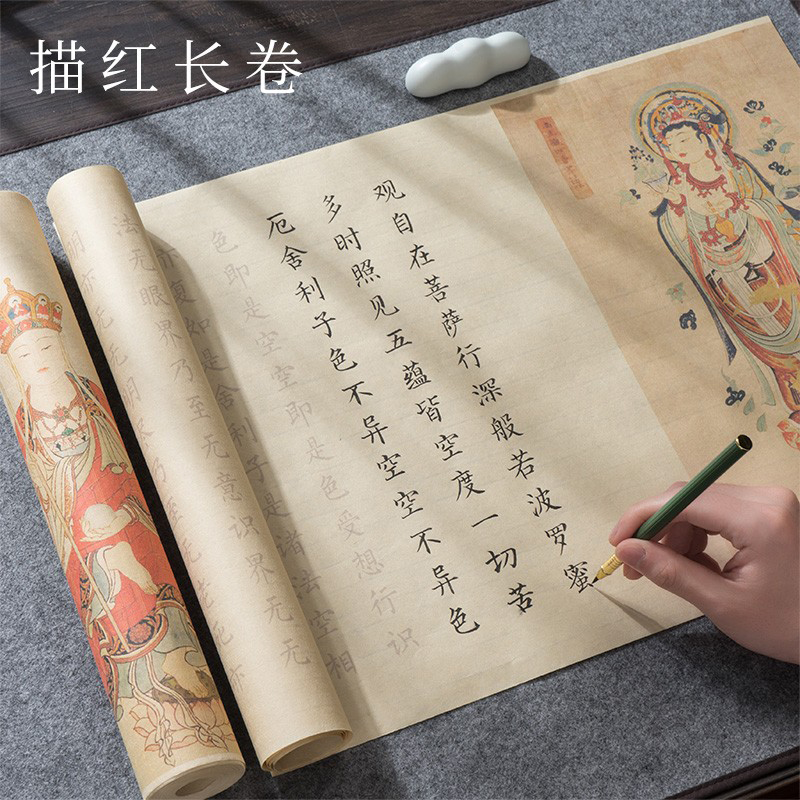 描红长卷
观自在菩萨行深般若波罗蜜
多时照见五蕴皆空度一切苦
厄舍利子色不异空空不异色
色即是空空即是色受想行识
亦复如是舍利子是诸法空相
法无眼界乃至无意识界无无
明亦无无明